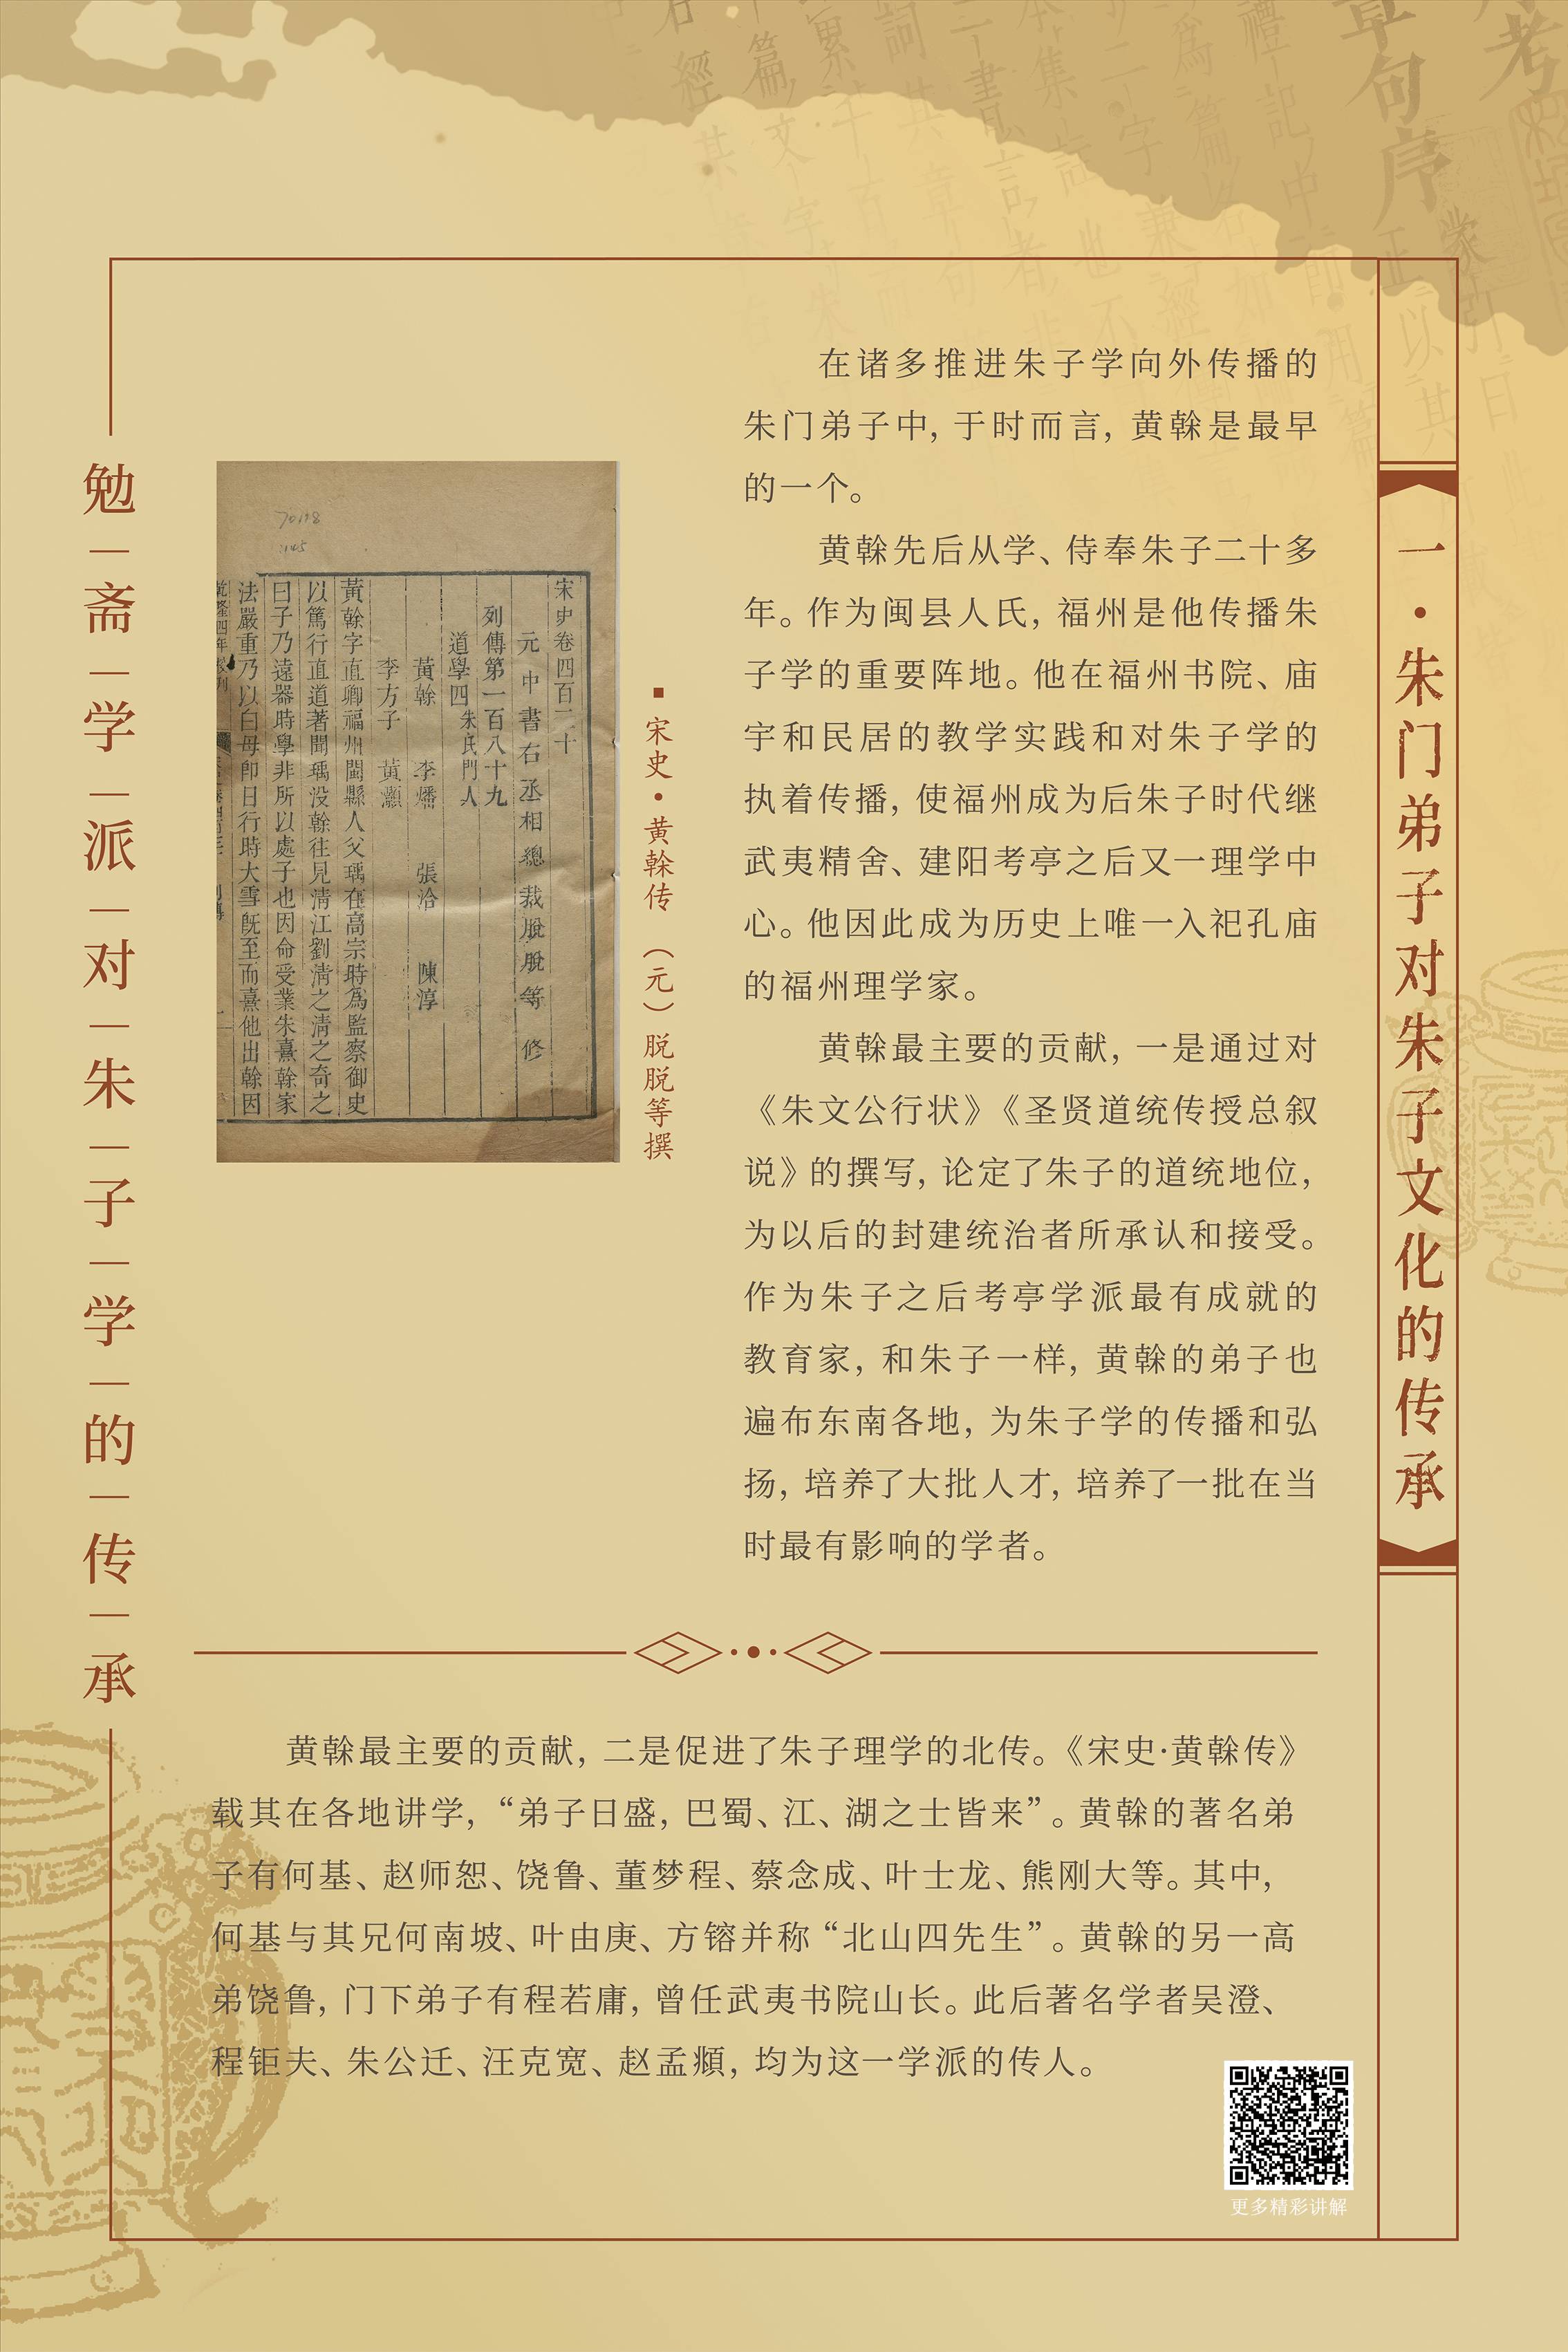 一·朱门弟子对朱子文化的传承
在诸多推进朱子学向外传播的
朱门弟子中，于时而言，黄榦是最早
的一个。
黄榦先后从学、侍奉朱子二十多
年。作为闽县人氏，福州是他传播朱
子学的重要阵地。他在福州书院、庙
宇和民居的教学实践和对朱子学的
执着传播，使福州成为后朱子时代继
武夷精舍、建阳考亭之后又一理学中
心。他因此成为历史上唯一入祀孔庙
的福州理学家。
黄榦最主要的贡献，一是通过对
《朱文公行状》《圣贤道统传授总叙
说》的撰写，论定了朱子的道统地位，
为以后的封建统治者所承认和接受。
作为朱子之后考亭学派最有成就的
教育家，和朱子一样，黄榦的弟子也
遍布东南各地，为朱子学的传播和弘
扬，培养了大批人才，培养了一批在当
时最有影响的学者。
■宋史·黄榦传 （元）脱脱等撰
宋史卷四百三十
元中書右丞相總裁脫脫等修
列傳第一百八十九
道學四 朱氏門人
黃榦 李燔 張洽 陳淳
李方子 黃灝
黃榦字直卿福州閩縣人父瑀在高宗時爲監察御史
以篤行直道著聞瑀没榦往見淸江劉淸之淸之奇之
曰子乃遠器時學非所以處子也因命受業朱熹榦家
法嚴重乃以白母卽日行時大雪旣至而熹他出榦因
勉斋学派对朱子学的传承
黄榦最主要的贡献，二是促进了朱子理学的北传。《宋史·黄榦传》
载其在各地讲学，“弟子日盛，巴蜀、江、湖之士皆来”。黄榦的著名弟
子有何基、赵师恕、饶鲁、董梦程、蔡念成、叶士龙、熊刚大等。其中，
何基与其兄何南坡、叶由庚、方镕并称“北山四先生”。黄榦的另一高
弟饶鲁，门下弟子有程若庸，曾任武夷书院山长。此后著名学者吴澄、
程钜夫、朱公迁、汪克宽、赵孟頫，均为这一学派的传人。
更多精彩讲解